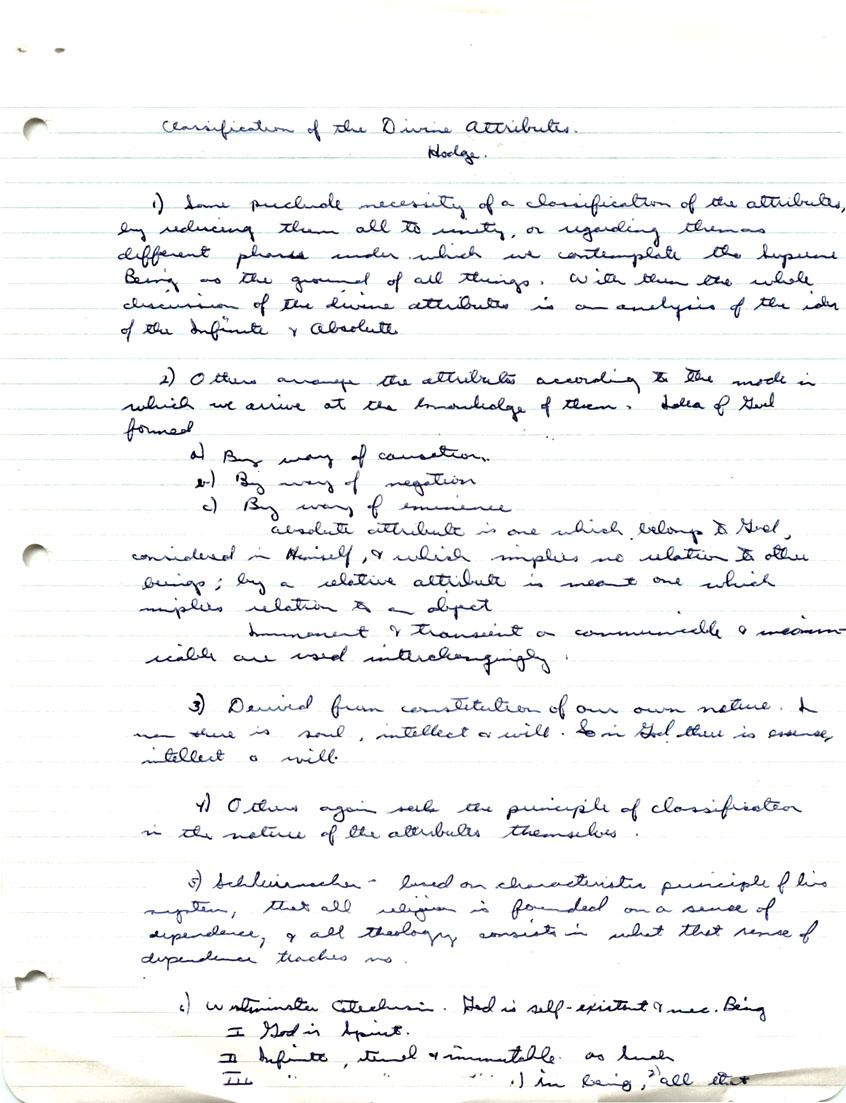 Classification of the Divine Attributes.
Hodge.
1) Some preclude necessity of a classification of the attributes,
by reducing them all to unity, or regarding them as
different phases under which we contemplate the Supreme
Being as the ground of all things. With them the whole
discussion of the divine attributes is an analysis of the idea
of the Infinite & Absolute
2) Others arrange the attributes according to the mode in
which we arrive at the knowledge of them. Idea of God
formed
a) By way of causation.
b) By way of negation
c) By way of eminence
absolute attribute is one which belongs to God,
considered in Himself, & which implies no relation to other
beings; by a relative attribute is meant one which
implies relation to an object
Immanent & transient or communicable & incommu-
nicable are used interchangingly.
3) Derived from constitution of our own nature. In
man there is soul, intellect & will. So in God there is essence,
intellect & will.
4) Others again seek the principle of classification
in the nature of the attributes themselves.
5) Schleiermacher - based on characteristic principle of his
system, that all religion is founded on a sense of
dependence, & all theology consists in what that sense of
dependence teaches us.
6) Westminster Catechism. God is self-existent & nec. Being
I God is Spirit.
II Infinite, ternal & immutable as such
III " " " 1) in being, 2) all that